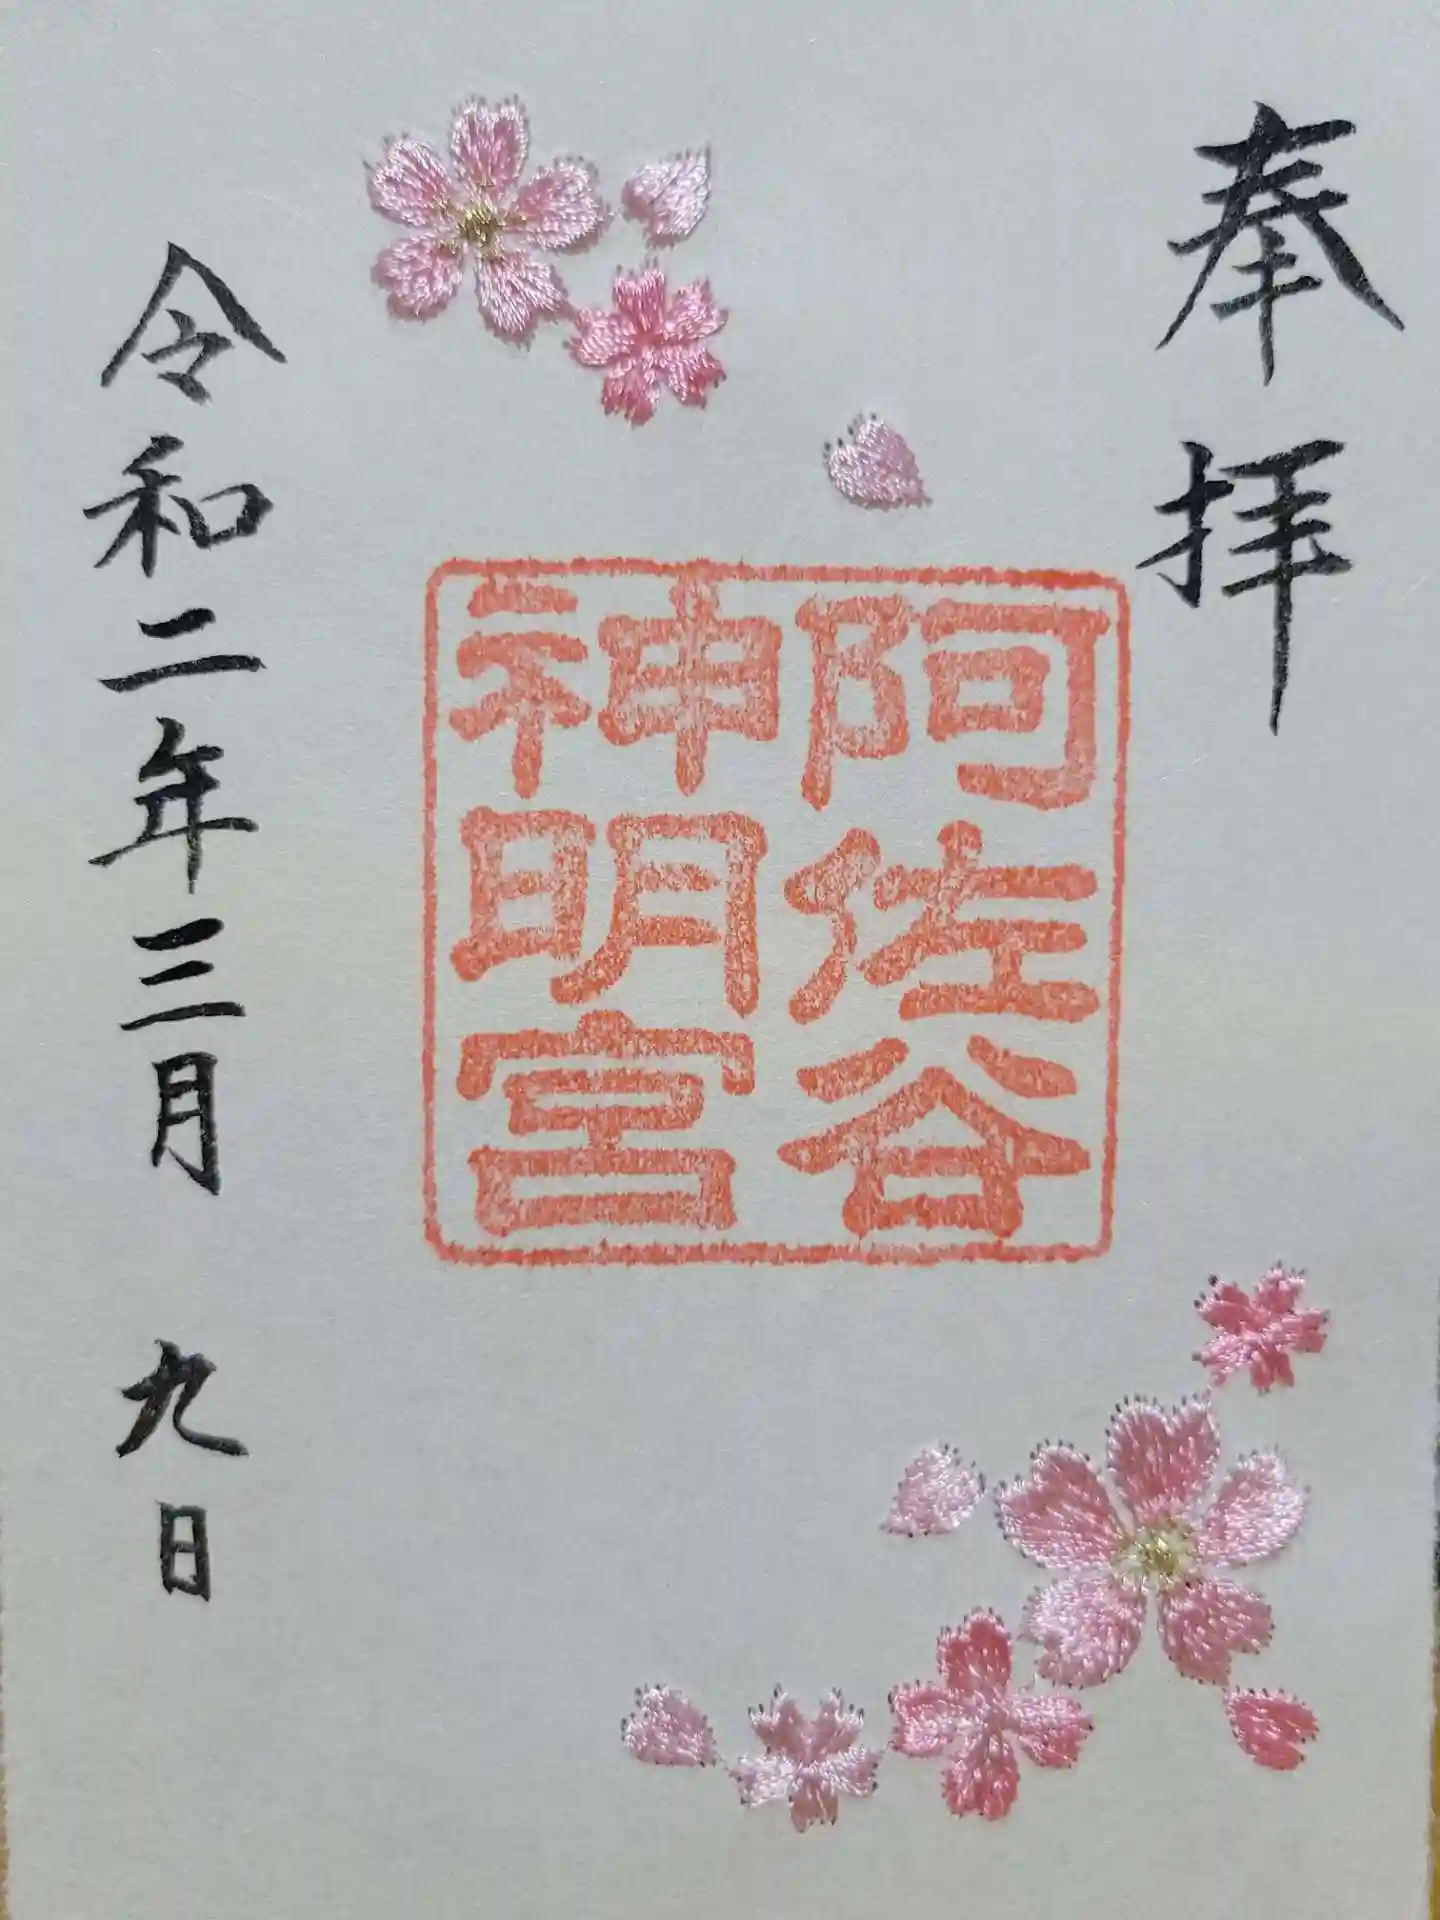 奉拝
阿佐谷
神明宮
令和二年三月九日